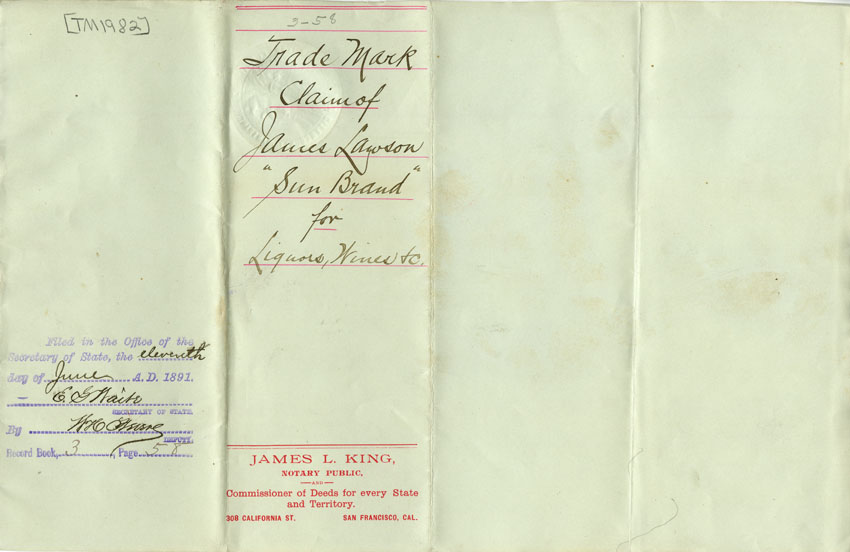 [TM1982]
3-58
Trade Mark
Claim of
James Lawson
"Sun Brand"
for
Liquors, Wines &c.
Filed in the Office of the
Secretary of State, the eleventh
day of June A. D. 1891.
E G Waite
SECRETARY OF STATE.
By
DEPUTY.
Record Book, 3, Page 58
JAMES L. KING,
NOTARY PUBLIC,
—AND—
Commissioner of Deeds for every State
and Territory.
308 CALIFORNIA ST. SAN FRANCISCO, CAL.